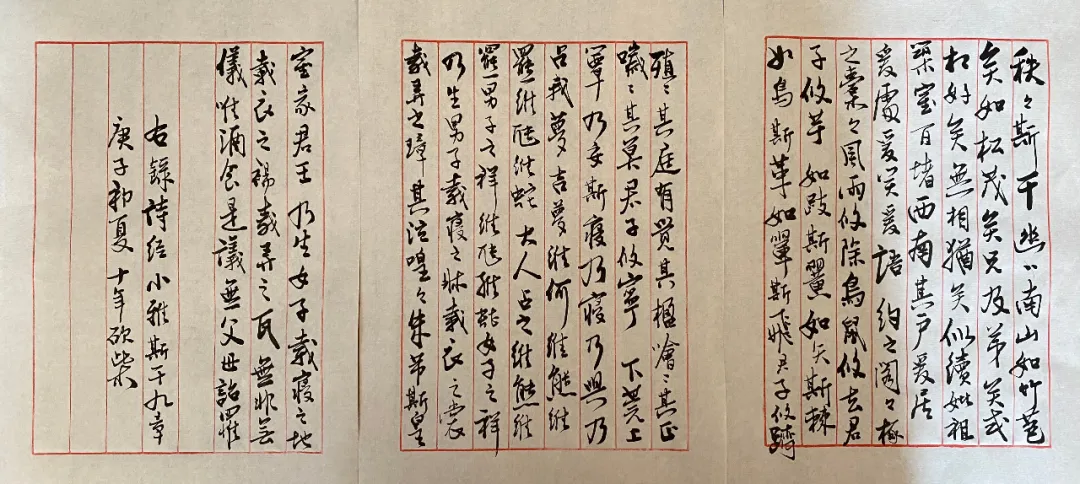 秩々斯干幽々南山如竹苞
矣如松茂矣兄及弟矣式
相好矣無相猶矣似續妣祖
築室百堵西南其戶爰居
爰處爰笑爰語 約之閣々椓
之橐々風雨攸除鳥鼠攸去君
子攸芋 如跂斯翼如矢斯棘
如鳥斯革如翬斯飛君子攸躋
殖々其庭有覺其楹噲々其正
噦々其冥君子攸寧 下莞上
簟乃安斯寢乃寢乃興乃
占我夢吉夢維何維熊維
羆維虺維蛇 大人占之維熊維
羆男子之祥維虺維蛇女子之祥
乃生男子載寢之牀載衣之裳
載弄之璋其泣喤々朱芾斯皇
室家君王 乃生女子載寢之地
載衣之裼載弄之瓦 無非無
儀唯酒食是議無父母詒罹
右錄詩經小雅斯干九章
庚子初夏十年砍柴